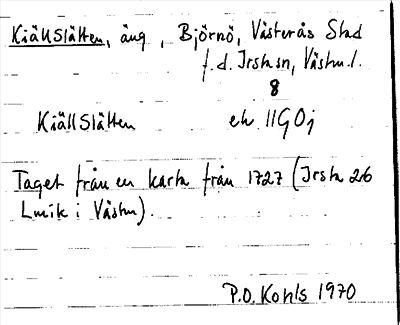 Kiällslätten, äng, Björnö, Västerås Stad
f.d. Irsta sn, Västm.l.
8
Kiällslätten ek. 11G0j
Taget från en karta från 1727 (Irsta 26
Lmfk i Västm).
P.O. Kohls 1970